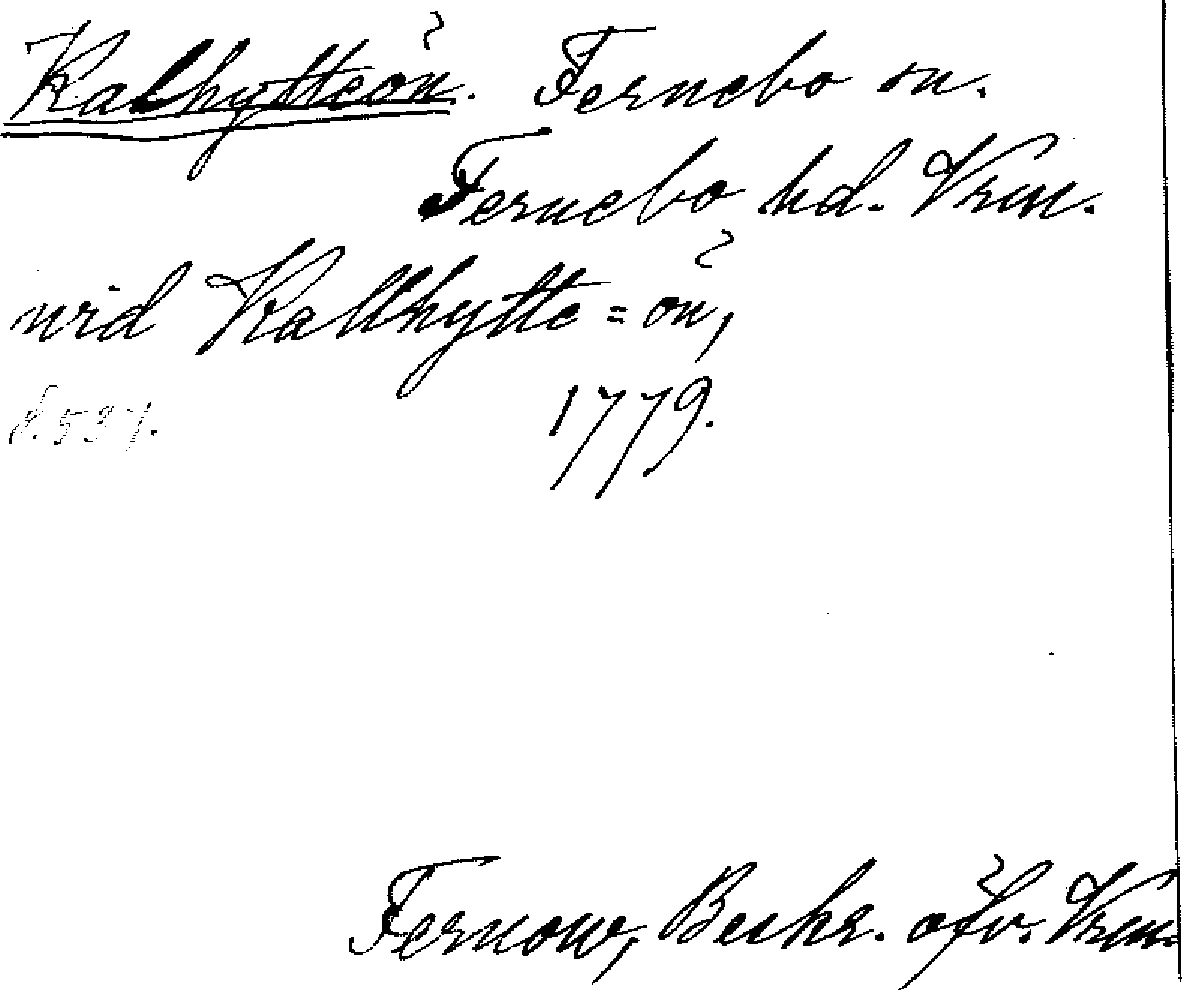 Kalhytteön. Fernebo sn.
Fernebo hd. Vrm.
wid Kallhytte=ön,
s. 537. 1779.
Fernow, Beskr. öfv. Vrm.